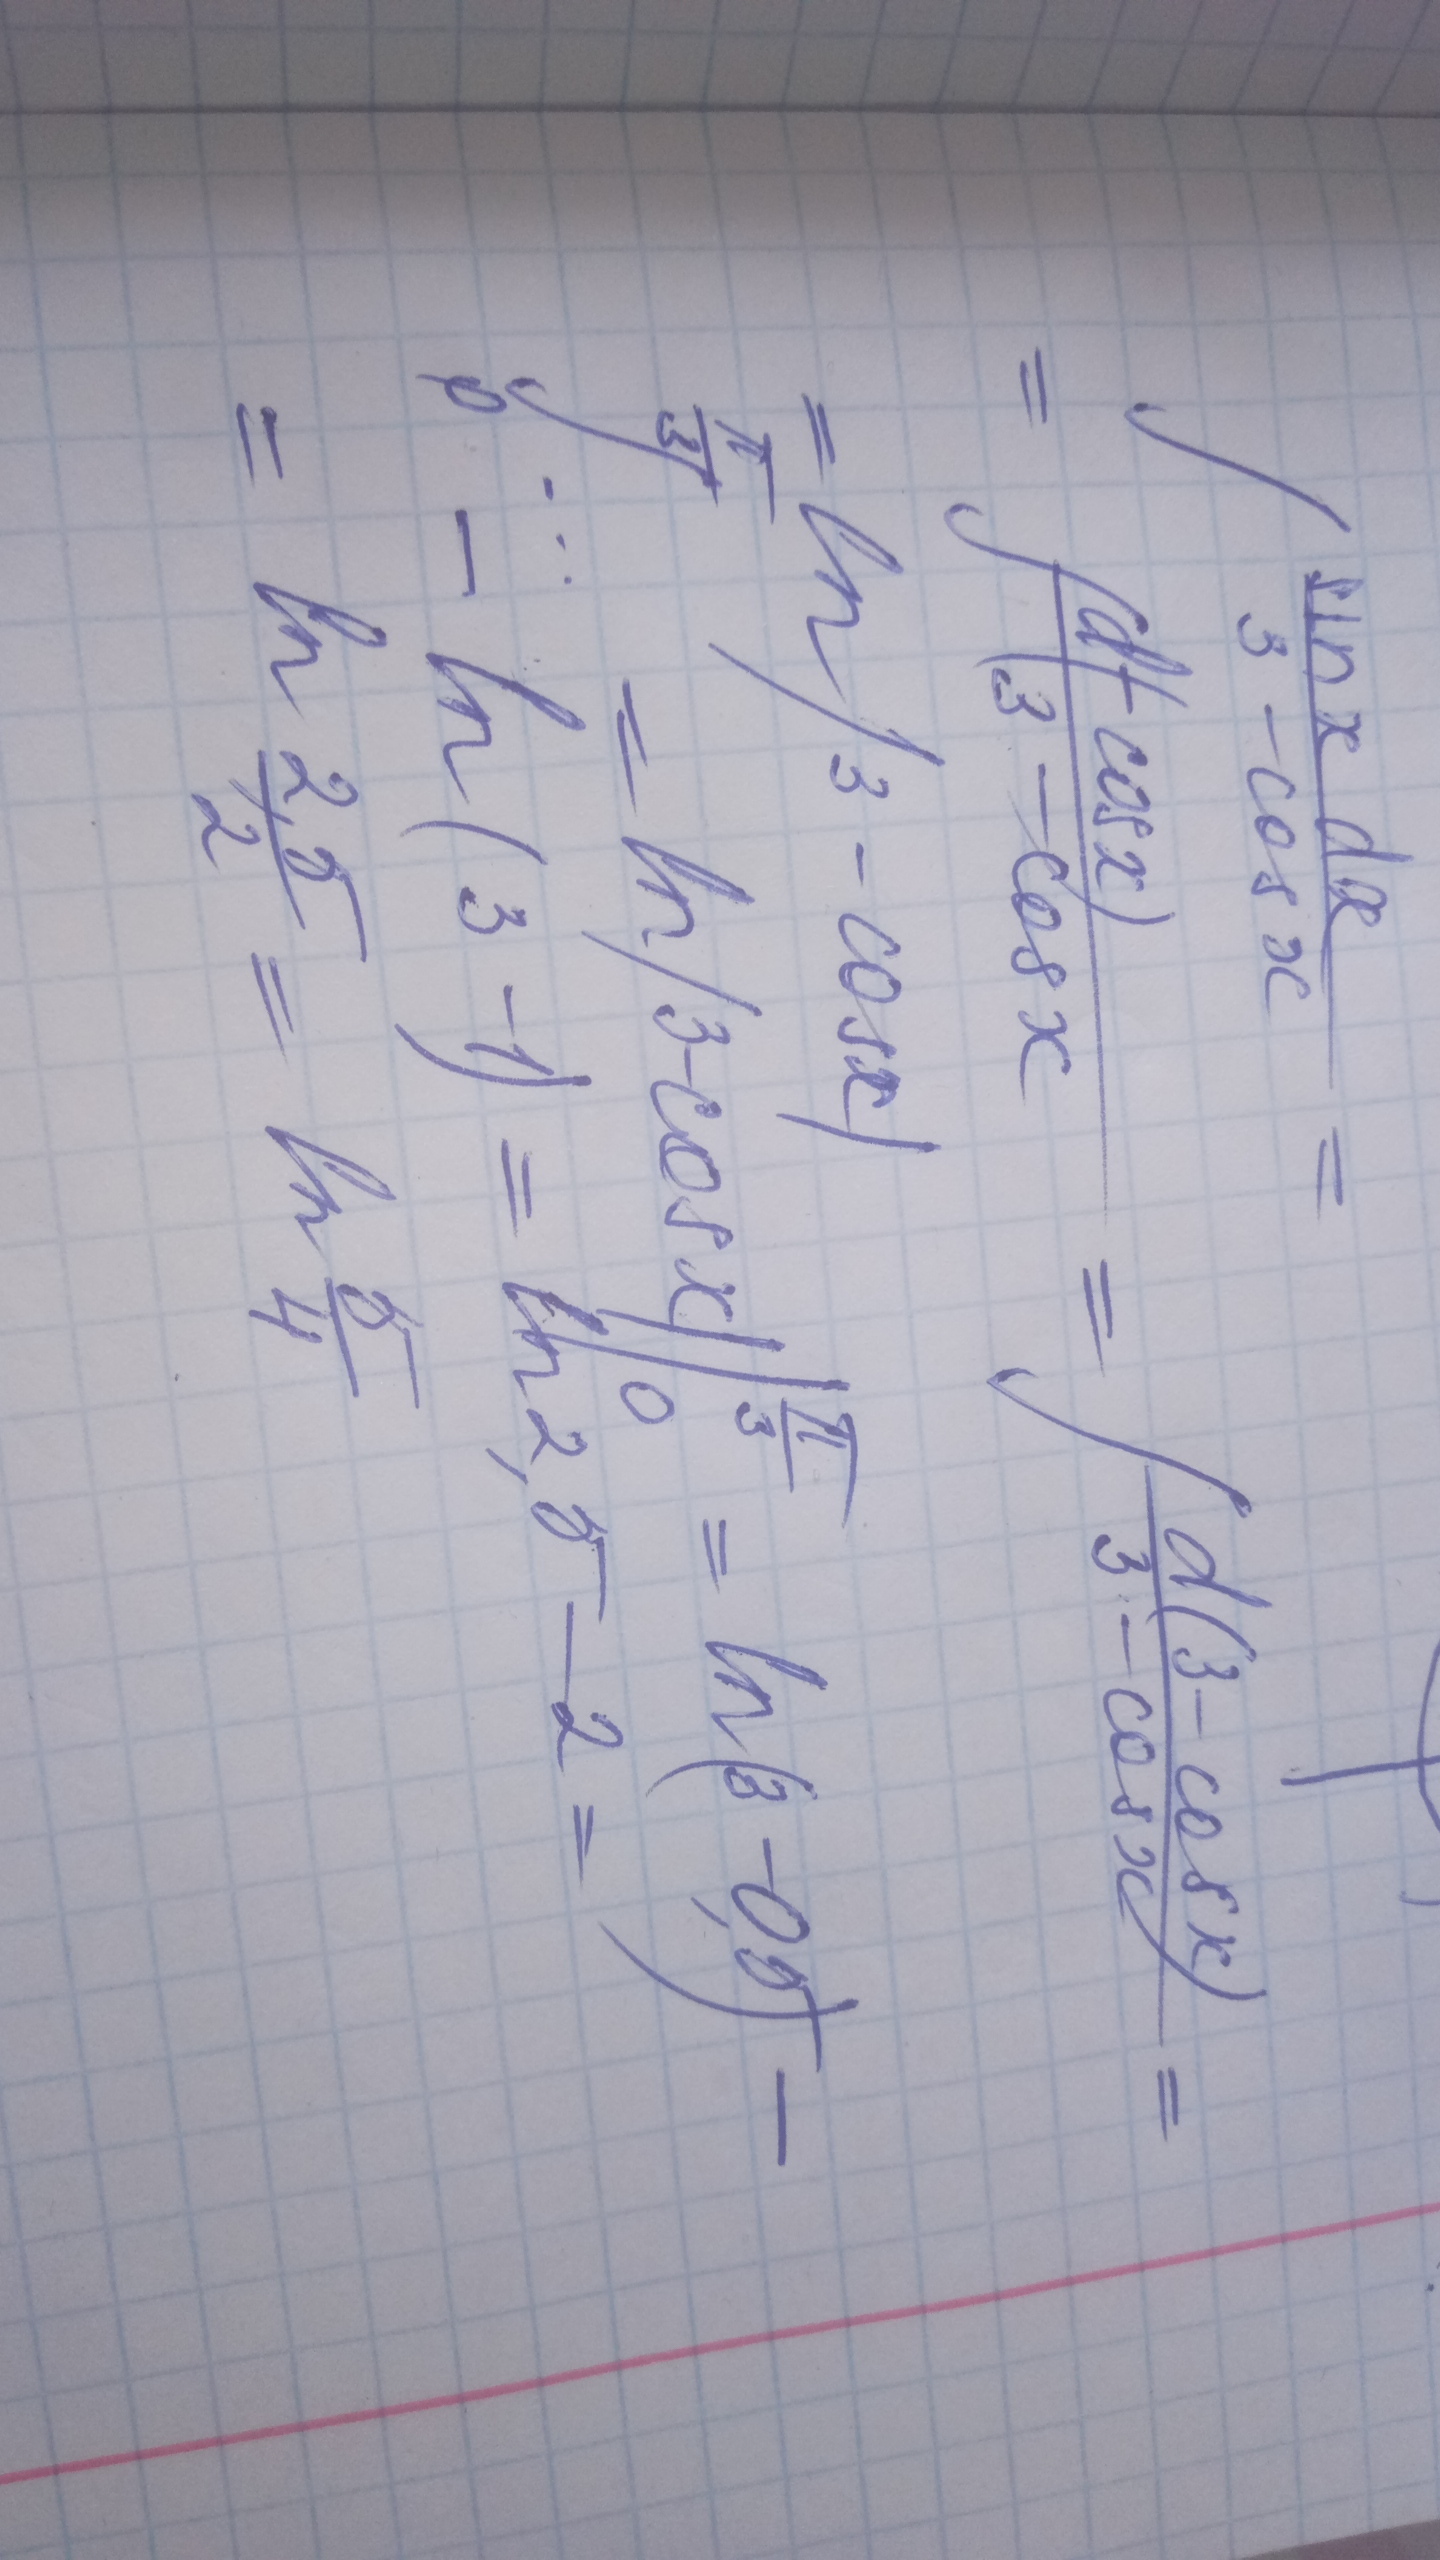 ∫ sin x dx / 3 - cos x =
= ∫ d(-cos x) / (3 - cos x = ∫ d(3 - cos x) / 3 - cos x =
= ln |3 - cos x|
∫₀^(π/3) ... = ln |3 - cos x| |₀^(π/3) = ln (3 - 0,5) -
- ln (3 - 1) = ln 2,5 - 2 =
= ln 2,5/2 = ln 5/4